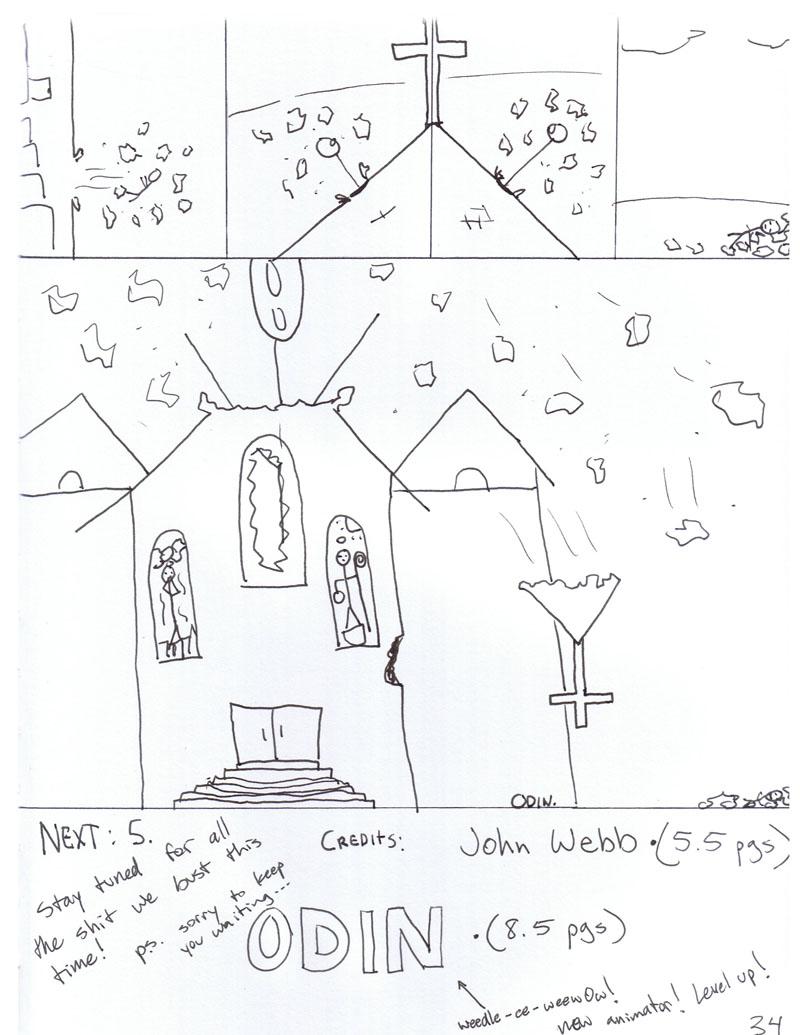 ODIN.
NEXT: 5.
Stay tuned for all
the shit we bust this
time!
p.s. sorry to keep
you waiting...
CREDITS:
John Webb • (5.5 pgs)
ODIN • (8.5 pgs)
weedle-ee-weew0w!
new animator! Level up!
34